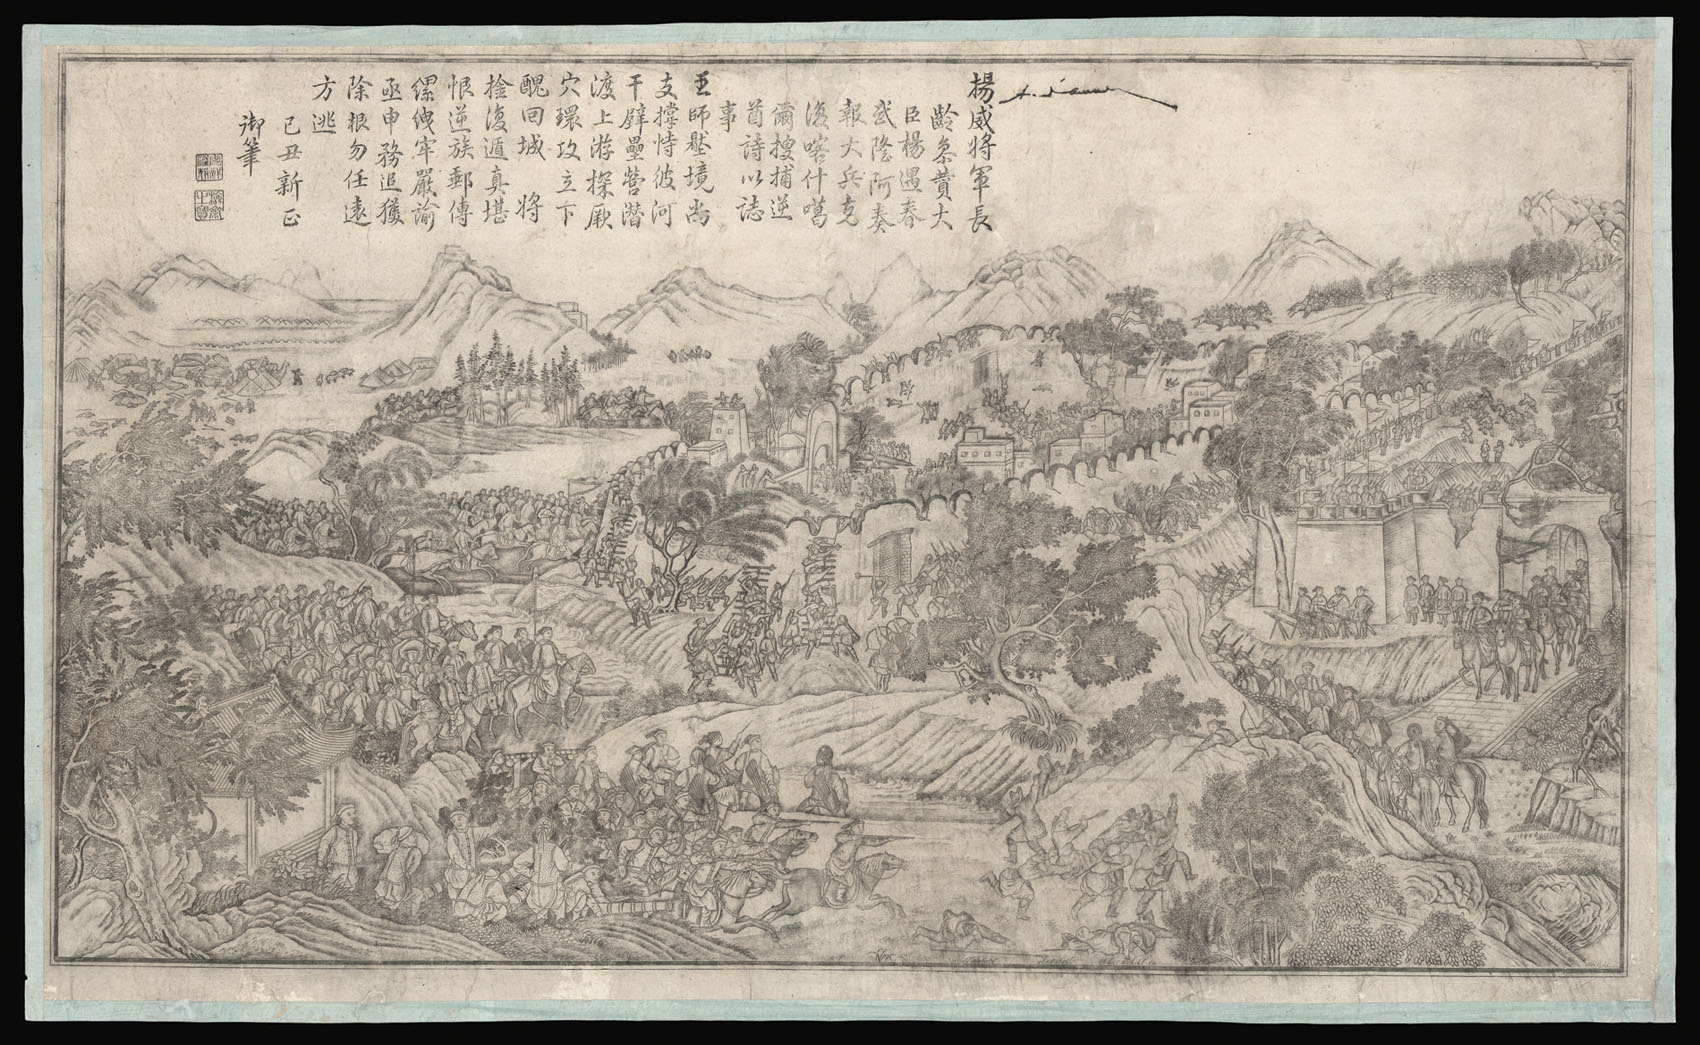 揚威將軍長
齡參贊大
臣楊遇春
武隆阿奏
報大兵克
復喀什噶
爾搜捕逆
酋詩以誌
事
王師壓境尚
支撐恃彼河
干壁壘營潛
渡上游探厥
穴環攻立下
醜回城將
擒復遁真堪
恨逆族郵傳
縲绁牢嚴諭
亟申務追獲
除根勿任遠
方逃
己丑新正
御筆